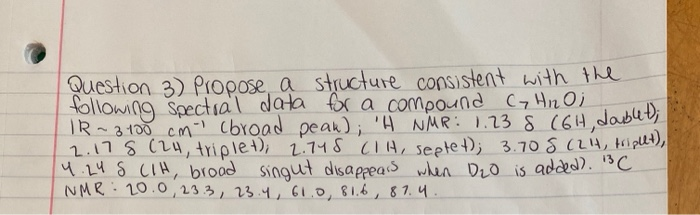 Question 3) Propose a structure consistent with the
following spectral data for a compound C7H12O;
IR ~ 3400 cm⁻¹ (broad peak); 'H NMR: 1.23 δ (6H, doublet);
2.17 δ (2H, triplet); 2.74 δ (1H, septet); 3.70 δ (2H, triplet),
4.24 δ (1H, broad singlet disappears when D2O is added). ¹³C
NMR: 20.0, 23.3, 23.4, 61.0, 81.6, 87.4.